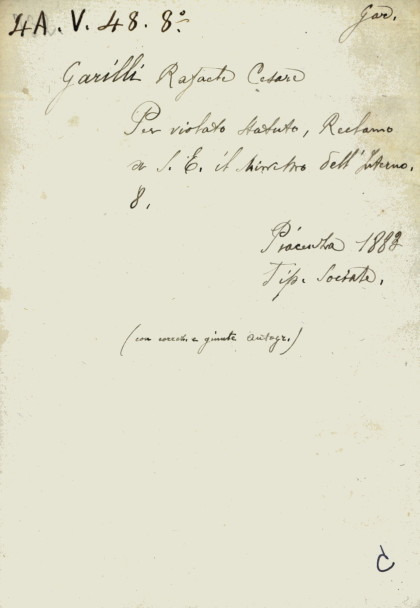 4A. V. 48. 8º.
Gar.
Garilli Rafaele Cesare
Per violato statuto, Reclamo
a S. E. il Ministro dell'Interno.
8.
Piacenza 1882
Tip. Sociale.
(con correz. e giunte autogr.)
C